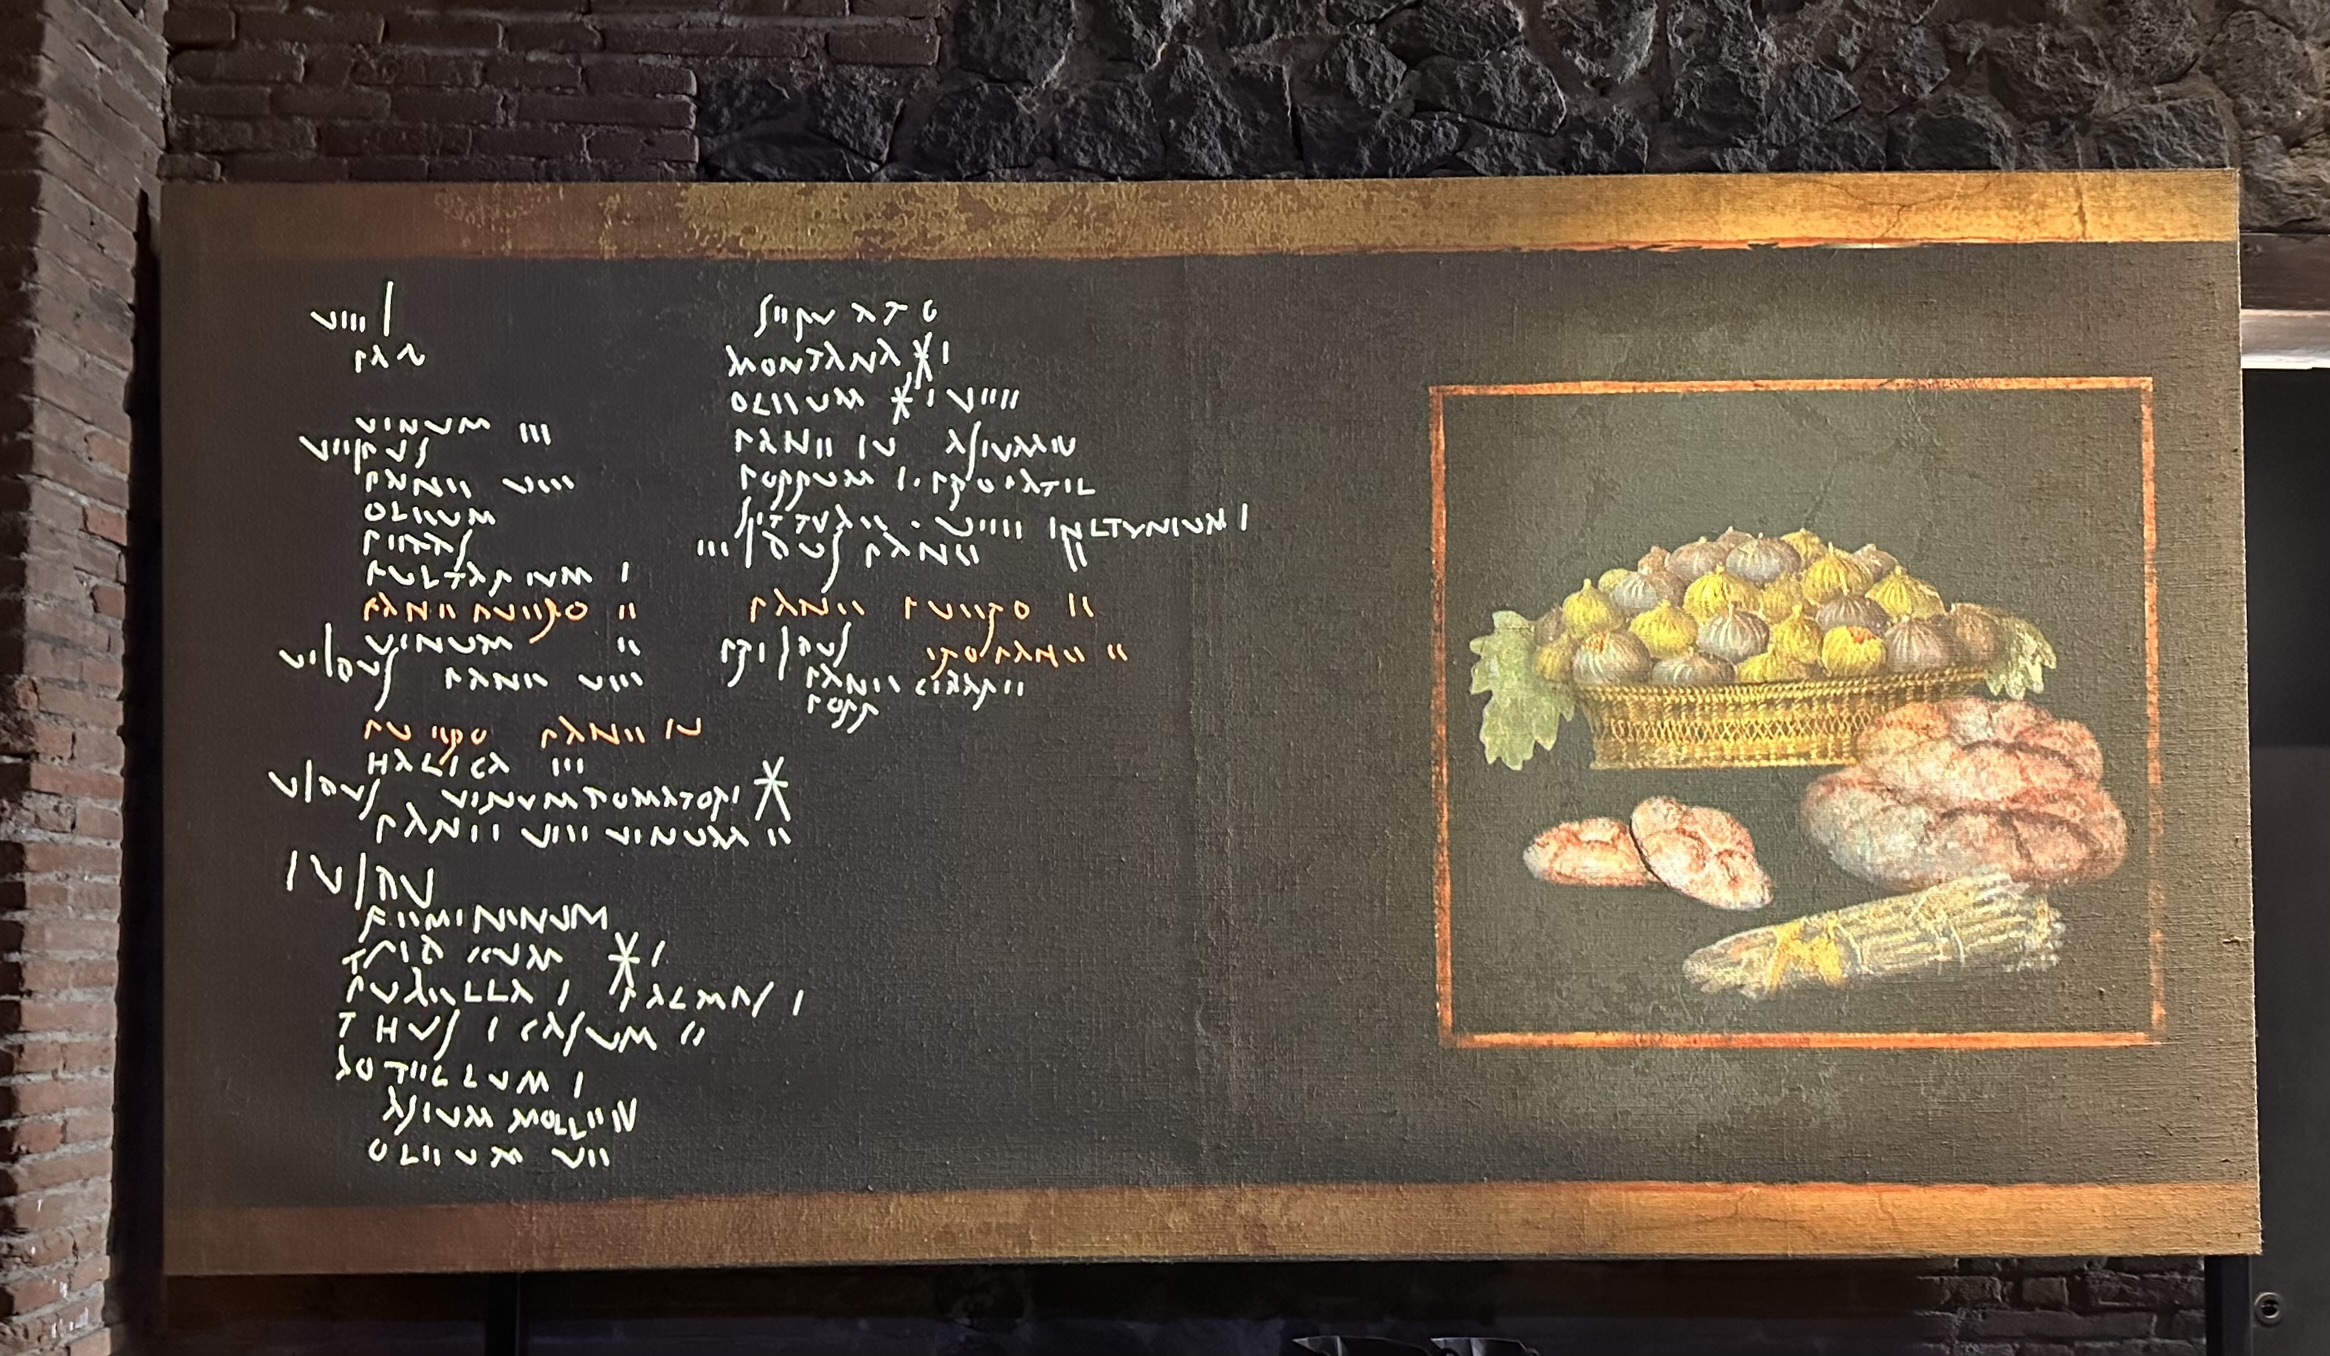 VIII I
PAN
VINUM III
VII IDUS
PANE VIII
OLEUM
CEPAS
PULTARIUM I
PANE PUERO II
VINUM II
VI IDUS PANE VIII
PUERO PANE IV
HALICA III
V IDUS VINUM DOMATORI *
PANE VIII VINUM II
IV IDU
FEMININUM
TRIDICUM * I
BUBELLA I PALMAS I
THUS I CASIUM II
BOTELLUM I
ASIUM MOLLE IV
OLEUM VII
SERVATO
MONTANA * I
OLEUM * I VIIII
PANE IV ASIUM IV
PORRUM I
SITTULAE VIIII INLTYNIUM I
III IDUS PANE II
PANE PUERO II
PRI IDUS PANE II
PANE CIBARE
PORR